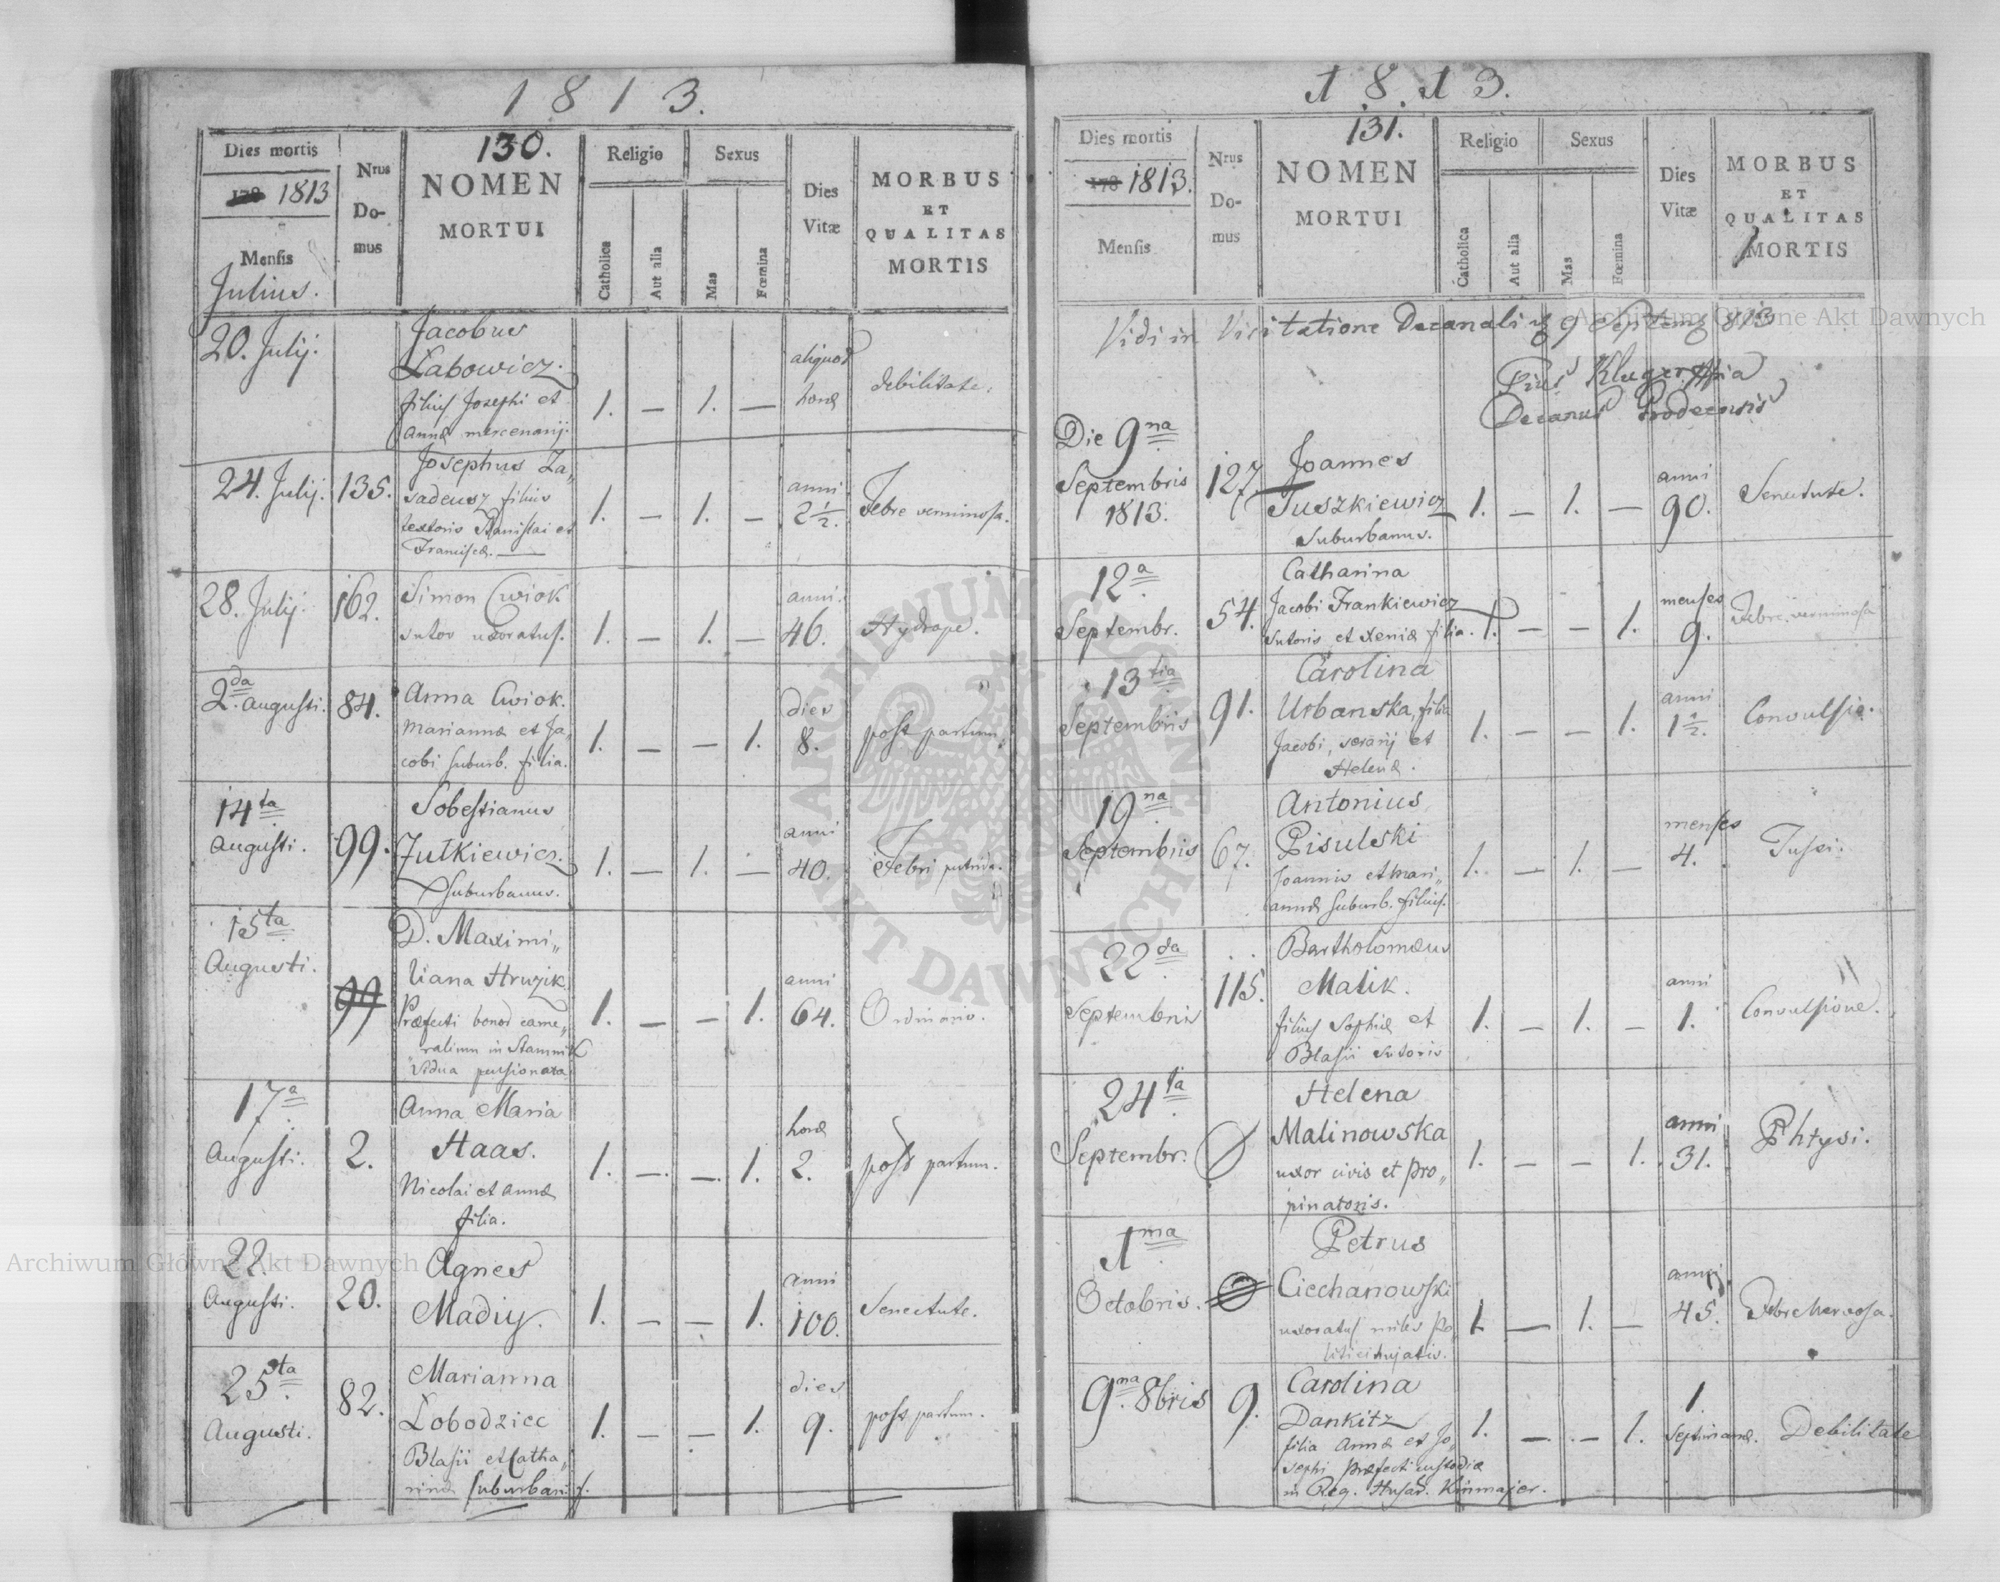 1813.
Dies mortis
1813
Mensis
Julius.
Nrus
Do-
mus
130.
NOMEN
MORTUI
Religio
Catholica
Aut alia
Sexus
Mas
Fœmina
Dies
Vitæ
MORBUS
ET
QUALITAS
MORTIS
20. Julij.
Jacobus
Labowicz.
filius Josephi et
Annæ mercenarij.
1. — 1. —
aliquot
horæ
debilitate.
24. Julij. 135.
Josephus Za„
sadeusz filius
textoris Stanislai et
Franciscæ.
1. — 1. —
anni
2½.
Febre verminosa.
28. Julij. 162.
Simon Cwiok
sutor uxoratus.
1. — 1. —
anni.
46.
Hydrope.
2da Augusti. 84.
Anna Cwiok.
Mariannæ et Ja„
cobi suburb. filia.
1. — — 1.
dies
8.
post partum.
14ta
Augusti. 99.
Sobestianus
Jutkiewicz.
suburbanus.
1. — 1. —
anni
40.
Febri putrida.
15ta
Augusti.
99
D. Maximi„
liana Hruzik
Præfecti bonor. came„
ralium in
vidua pensionata
1. — — 1.
anni
64.
Ordinario.
17a
Augusti. 2.
Anna Maria
Haas.
Nicolai et Annæ
filia.
1. — — 1.
horæ
2.
post partum.
22.
Augusti. 20.
Agnes
Madiy.
1. — — 1.
anni
100.
Senectute.
25ta
Augusti. 82.
Marianna
Lobodziec
Blasii et Catha„
rinæ suburban.
1. — — 1.
dies
9.
post partum.
1813.
Dies mortis
1813.
Mensis
Nrus
Do-
mus
131.
NOMEN
MORTUI
Religio
Catholica
Aut alia
Sexus
Mas
Fœmina
Dies
Vitæ
MORBUS
ET
QUALITAS
MORTIS
Vidi in Visitatione Decanali 9 Septemb 813
Pius
Decanus
Die 9na
Septembris
1813.
127.
Joannes
Tuszkiewicz
Suburbanus.
1. — 1. —
anni
90.
Senectute.
12a
Septembr. 54.
Catharina
Jacobi Frankiewicz
sutoris et Xeniæ filia.
1. — — 1.
menses
9.
Febre verminosa
13tia
Septembris 91.
Carolina
Urbanska, filia
Jacobi, serarij et
Helenæ.
1. — — 1.
anni
1½.
Convulsio.
19na
Septembris 67.
Antonius
Pisulski
Joannis et Mari„
annæ suburb. filius.
1. — 1. —
menses
4.
Tussi.
22da
Septembris 115.
Bartholomæus
Matik.
filius Sophiæ et
Blasii sutoris
1. — 1. —
anni
1.
Convulsione.
24ta
Septembr.
Helena
Malinowska
uxor civis et pro„
pinatoris.
1. — — 1.
anni
31.
Phtysi.
1ma
Octobris.
Petrus
Ciechanowski
uxoratus miles po„
litici hujatis.
1. — 1. —
anni
45.
Febre nervosa.
9na 8bris 9.
Carolina
Dankitz
filia Annæ et Jo„
sephi Præfecti custodiæ
in Reg. Husar. Kinmajer.
1. — — 1.
1.
septimanæ.
Debilitate
Archiwum Główne Akt Dawnych
Archiwum Główne Akt Dawnych
ARCHIWUM GŁÓWNE
AKT DAWNYCH